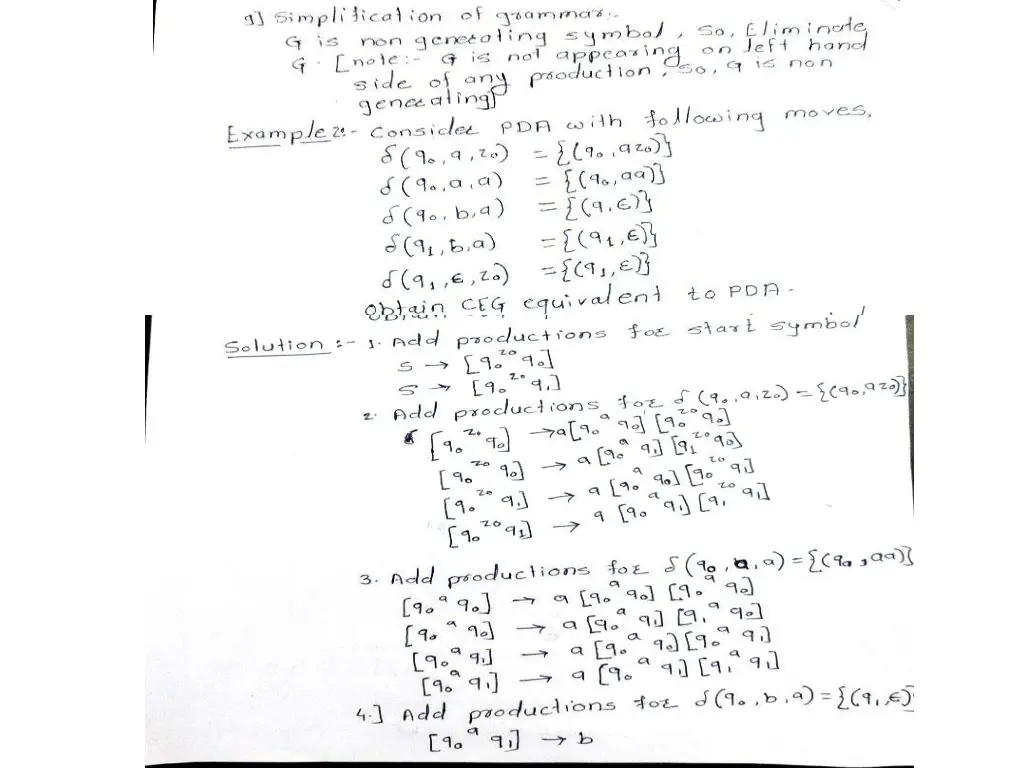 9] Simplification of grammar:-
G is non generating symbol, So, Eliminate
G. [note:- G is not appearing on left hand
side of any production, So, G is non
generating]
Example 2:- Consider PDA with following moves,
δ(q₀, a, z₀) = {(q₀, az₀)}
δ(q₀, a, a) = {(q₀, aa)}
δ(q₀, b, a) = {(q, ε)}
δ(q₁, b, a) = {(q₁, ε)}
δ(q₁, ε, z₀) = {(q₁, ε)}
Obtain CFG equivalent to PDA.
Solution :- 1. Add productions for start symbol
S → [q₀ ᶻ⁰ q₀]
S → [q₀ ᶻ⁰ q₁]
2. Add productions for δ(q₀, a, z₀) = {(q₀, az₀)}
[q₀ ᶻ⁰ q₀] → a[q₀ ᵃ q₀] [q₀ ᶻ⁰ q₀]
[q₀ ᶻ⁰ q₀] → a [q₀ ᵃ q₁] [q₁ ᶻ⁰ q₀]
[q₀ ᶻ⁰ q₁] → a [q₀ ᵃ q₀] [q₀ ᶻ⁰ q₁]
[q₀ ᶻ⁰ q₁] → a [q₀ ᵃ q₁] [q₁ ᶻ⁰ q₁]
3. Add productions for δ(q₀, a, a) = {(q₀, aa)}
[q₀ ᵃ q₀] → a [q₀ ᵃ q₀] [q₀ ᵃ q₀]
[q₀ ᵃ q₀] → a [q₀ ᵃ q₁] [q₁ ᵃ q₀]
[q₀ ᵃ q₁] → a [q₀ ᵃ q₀] [q₀ ᵃ q₁]
[q₀ ᵃ q₁] → a [q₀ ᵃ q₁] [q₁ ᵃ q₁]
4.] Add productions for δ(q₀, b, a) = {(q₁, ε)
[q₀ ᵃ q₁] → b